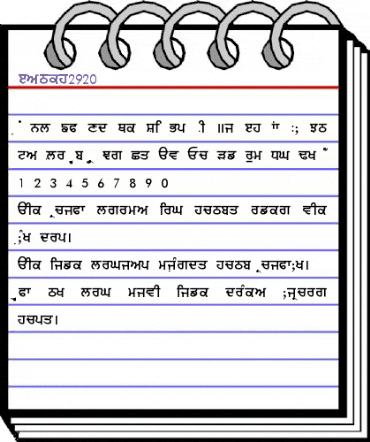 ੲਅਠਕਹ2920
ੰ ਨਲ ਙਫ ਣਦ ਥਕ ਸ਼ਿ ਭਪ ੀ ॥ਜ ੲਹ ਾਂ :; ਝਠ
ਟਅ ਲ਼ਰ ੍ਰ ਬ ੂ ਵਗ ਛਤ ੳਵ ਓਚ ੜਡ ਰੁਮ ਧਘ ਢਖ
1 2 3 4 5 6 7 8 9 0
ਓੀਕ ੍ਰਚਜਫਾ ਲਗਰਮਅ ਰਿਘ ਹਚਠਬਤ ਰਡਕਗ ਵੀਕ
;ੰਖ ਦਰਪ।
ਓੀਕ ਜਿਡਕ ਲਰਘਜਅਪ ਮਜ਼ੰਗਦਤ ਹਚਠਬ ੍ਰਚਜਫਾ;ਖ।
ੂਫਾ ਠਖ ਲਰਘ ਮਜਵੀ ਜਿਡਕ ਦਰੰਕਅ ;ਜ੍ਰਚਰਗ
ਹਚਪਤ।